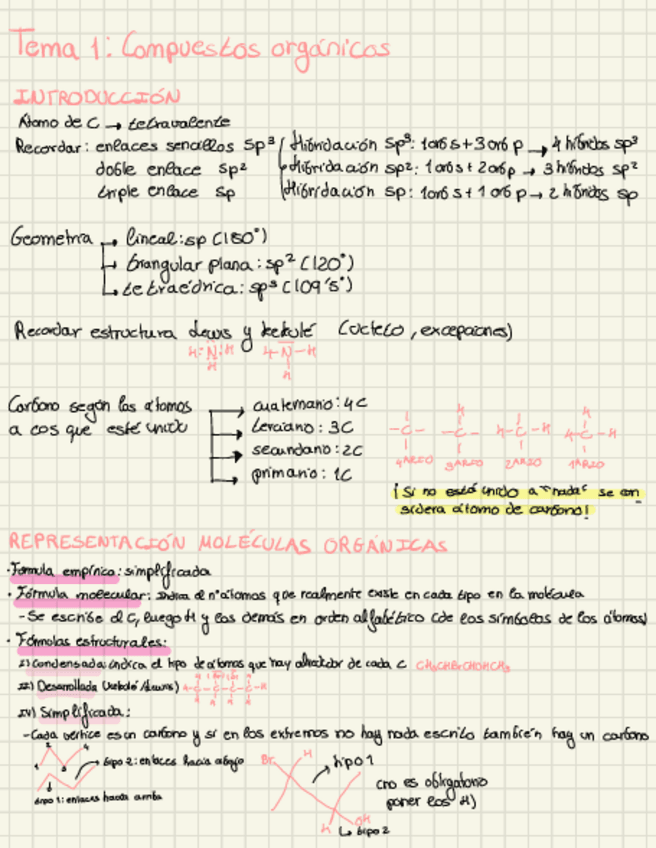 Tema 1: Compuestos orgánicos
INTRODUCCIÓN
Átomo de C → tetravalente
Recordar: enlaces sencillos sp³ Hibridación sp³: 1orb s + 3 orb p → 4 híbridos sp³
doble enlace sp² Hibridación sp²: 1 orb s + 2 orb p → 3 híbridos sp²
triple enlace sp Hibridación sp: 1orb s + 1 orb p → 2 híbridos sp
Geometria → lineal: sp (180°)
→ triangular plana: sp² (120°)
→ tetraédrica: sp³ (109'5°)
Recordar estructura Lewis y kekulé (octeto, excepciones)
Carbono según los átomos
a los que esté unido
cuaternario: 4C
terciario: 3C
secundario: 2C
primario: 1C
4ARIO 3ARIO 2ARIO 1ARIO
¡Si no está unido a "nada" se con
sidera átomo de carbono!
REPRESENTACIÓN MOLÉCULAS ORGÁNICAS
· Formula empírica: simplificada
· Fórmula molecular: indica el nº átomos que realmente existe en cada tipo en la molécula
- Se escribe el C, luego H y los demás en orden alfabético (de los símbolos de los átomos)
· Fómolas estructurales:
I) Condensada: indica el tipo de átomos que hay alrededor de cada C CH₃CHBrCHOHCH₃
II) Desarrollada (kekulé/Lewis)
IV) Simplificada:
- Cada vértice es un carbono y si en los extremos no hay nada escrito también hay un carbono
tipo 2: enlaces hacia abajo
tipo 1: enlaces hacia arriba
Br H tipo 1
(no es obligatorio
poner los H)
H OH
↳ tipo 2